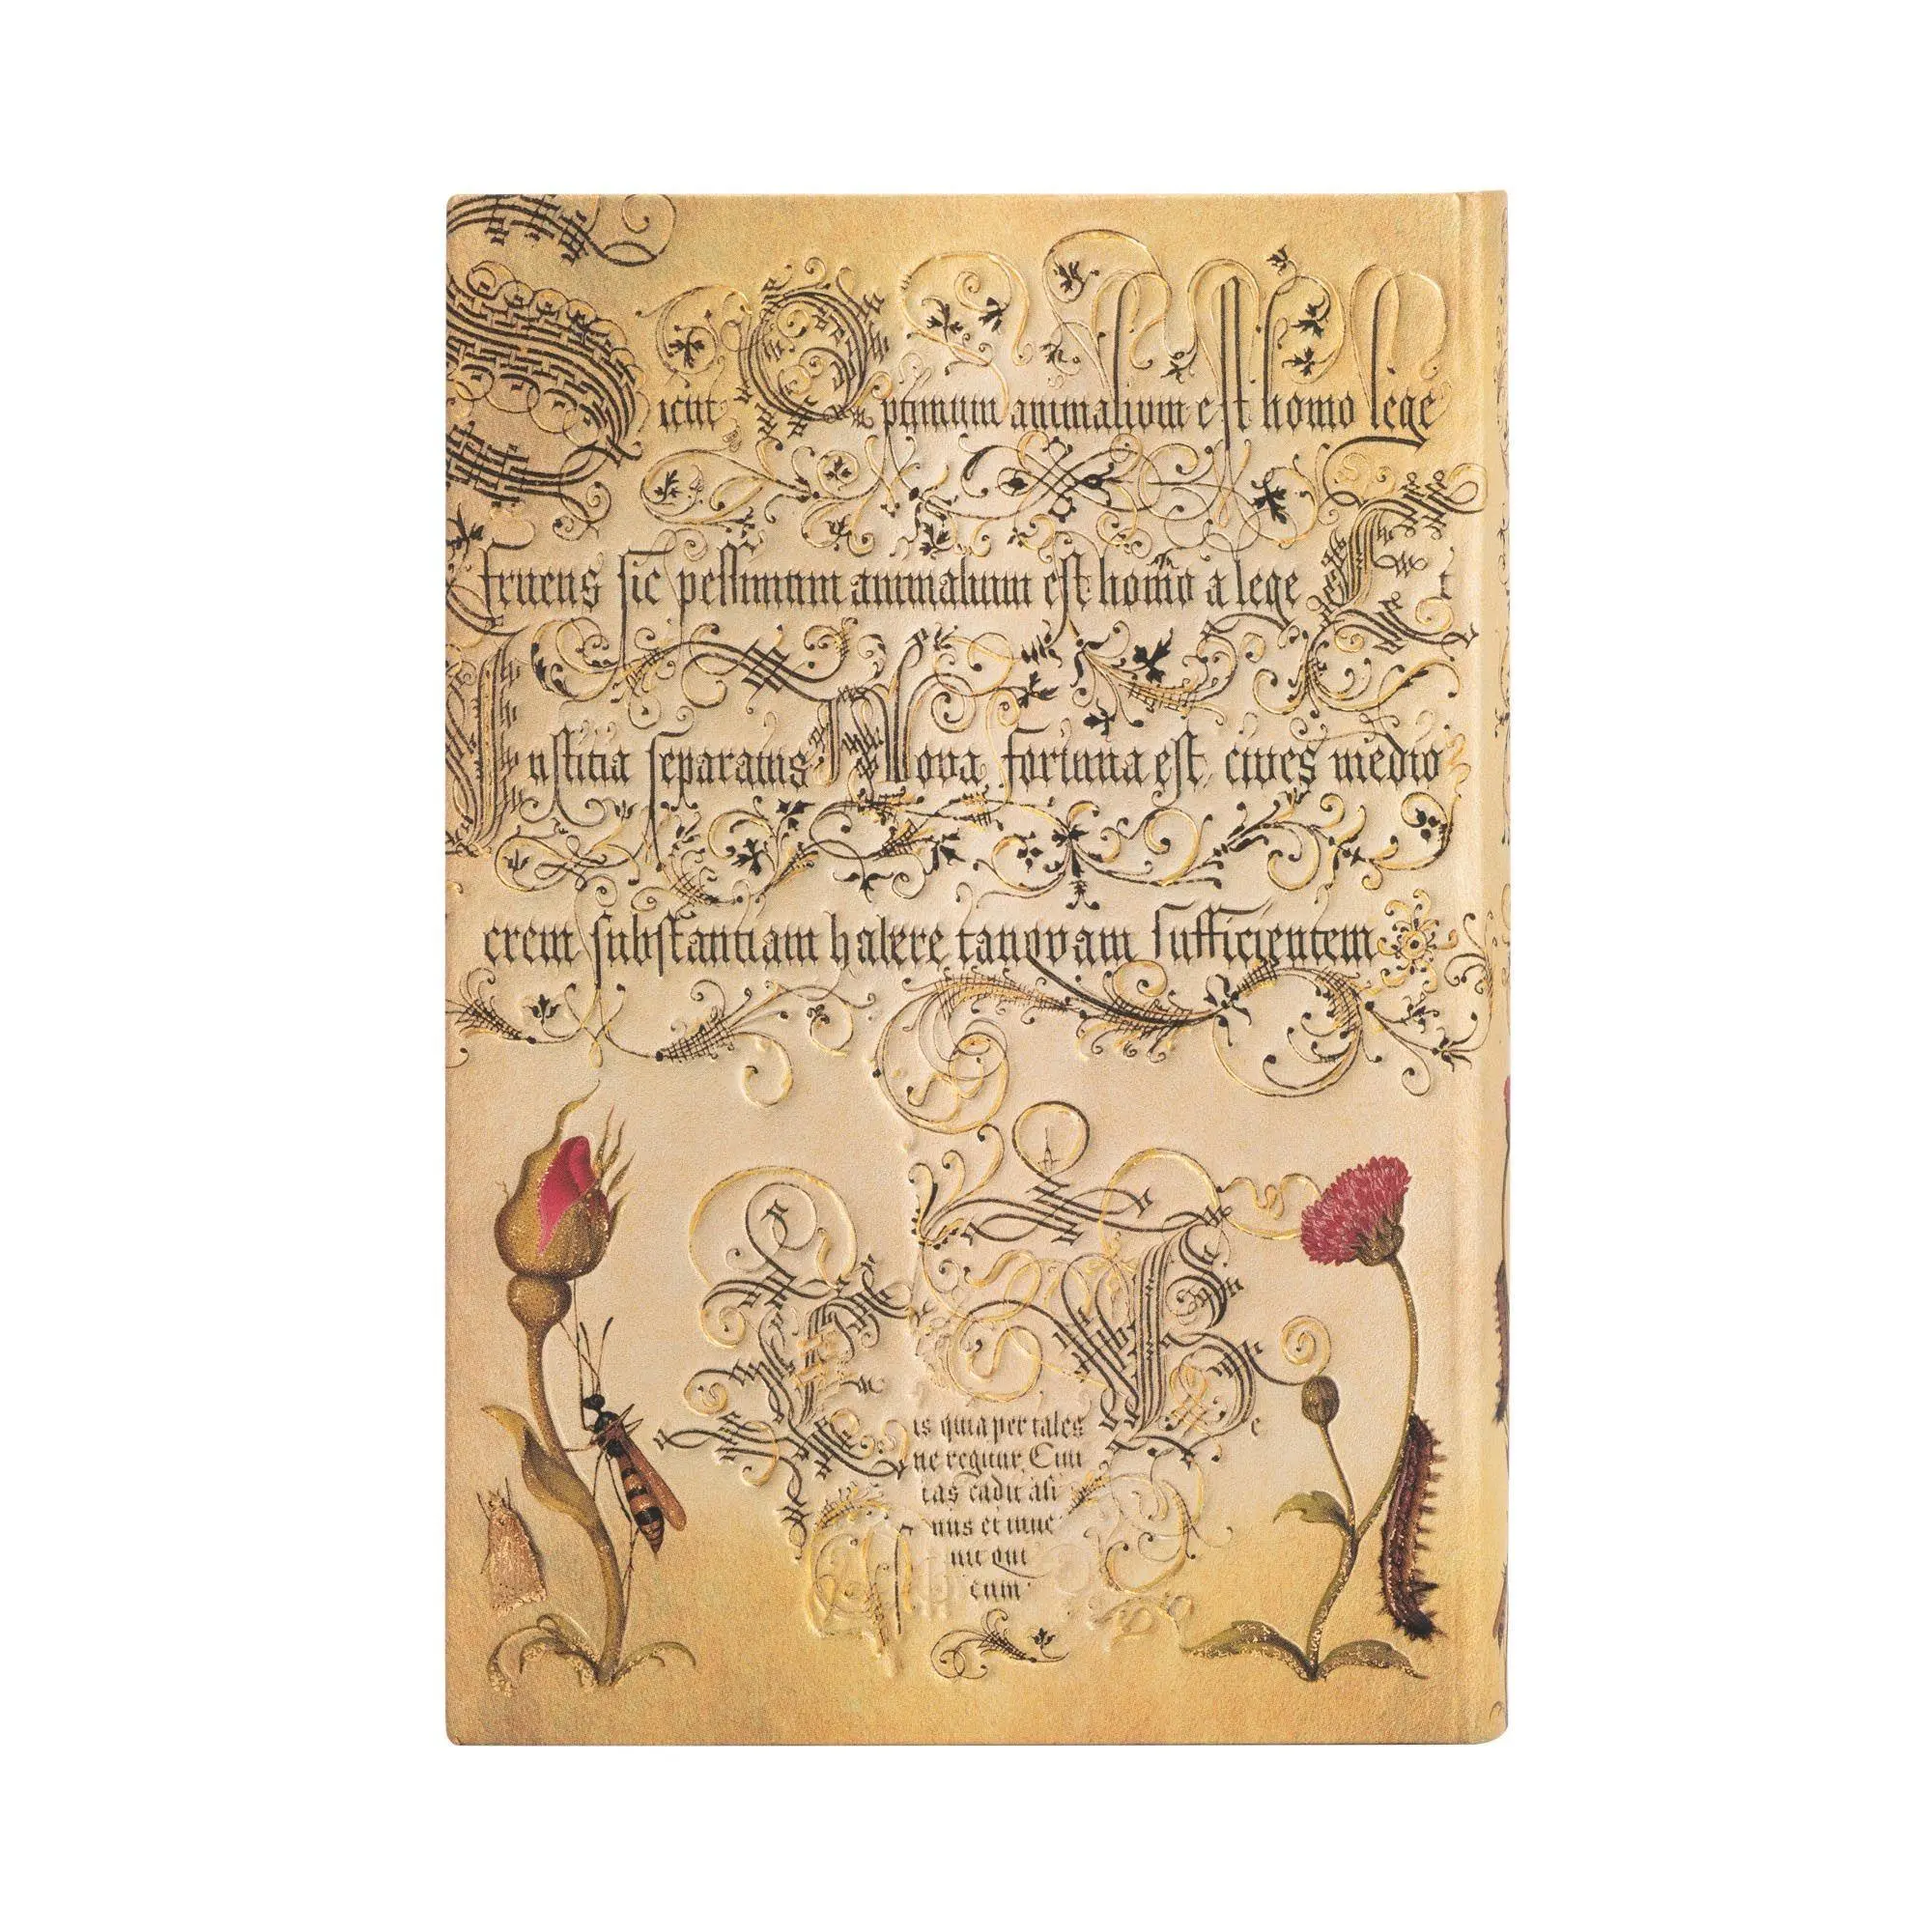 Sicut Optimum animalium est homo lege
fruens sic pessimum animalium est homo a lege Et
Iustitia separatus Nova fortuna est cives medio
crem substantiam habere tanquam sufficientem
is quia per tales
ne regitur Civi
tas cadit asi
nus et inve
nit qui
eum